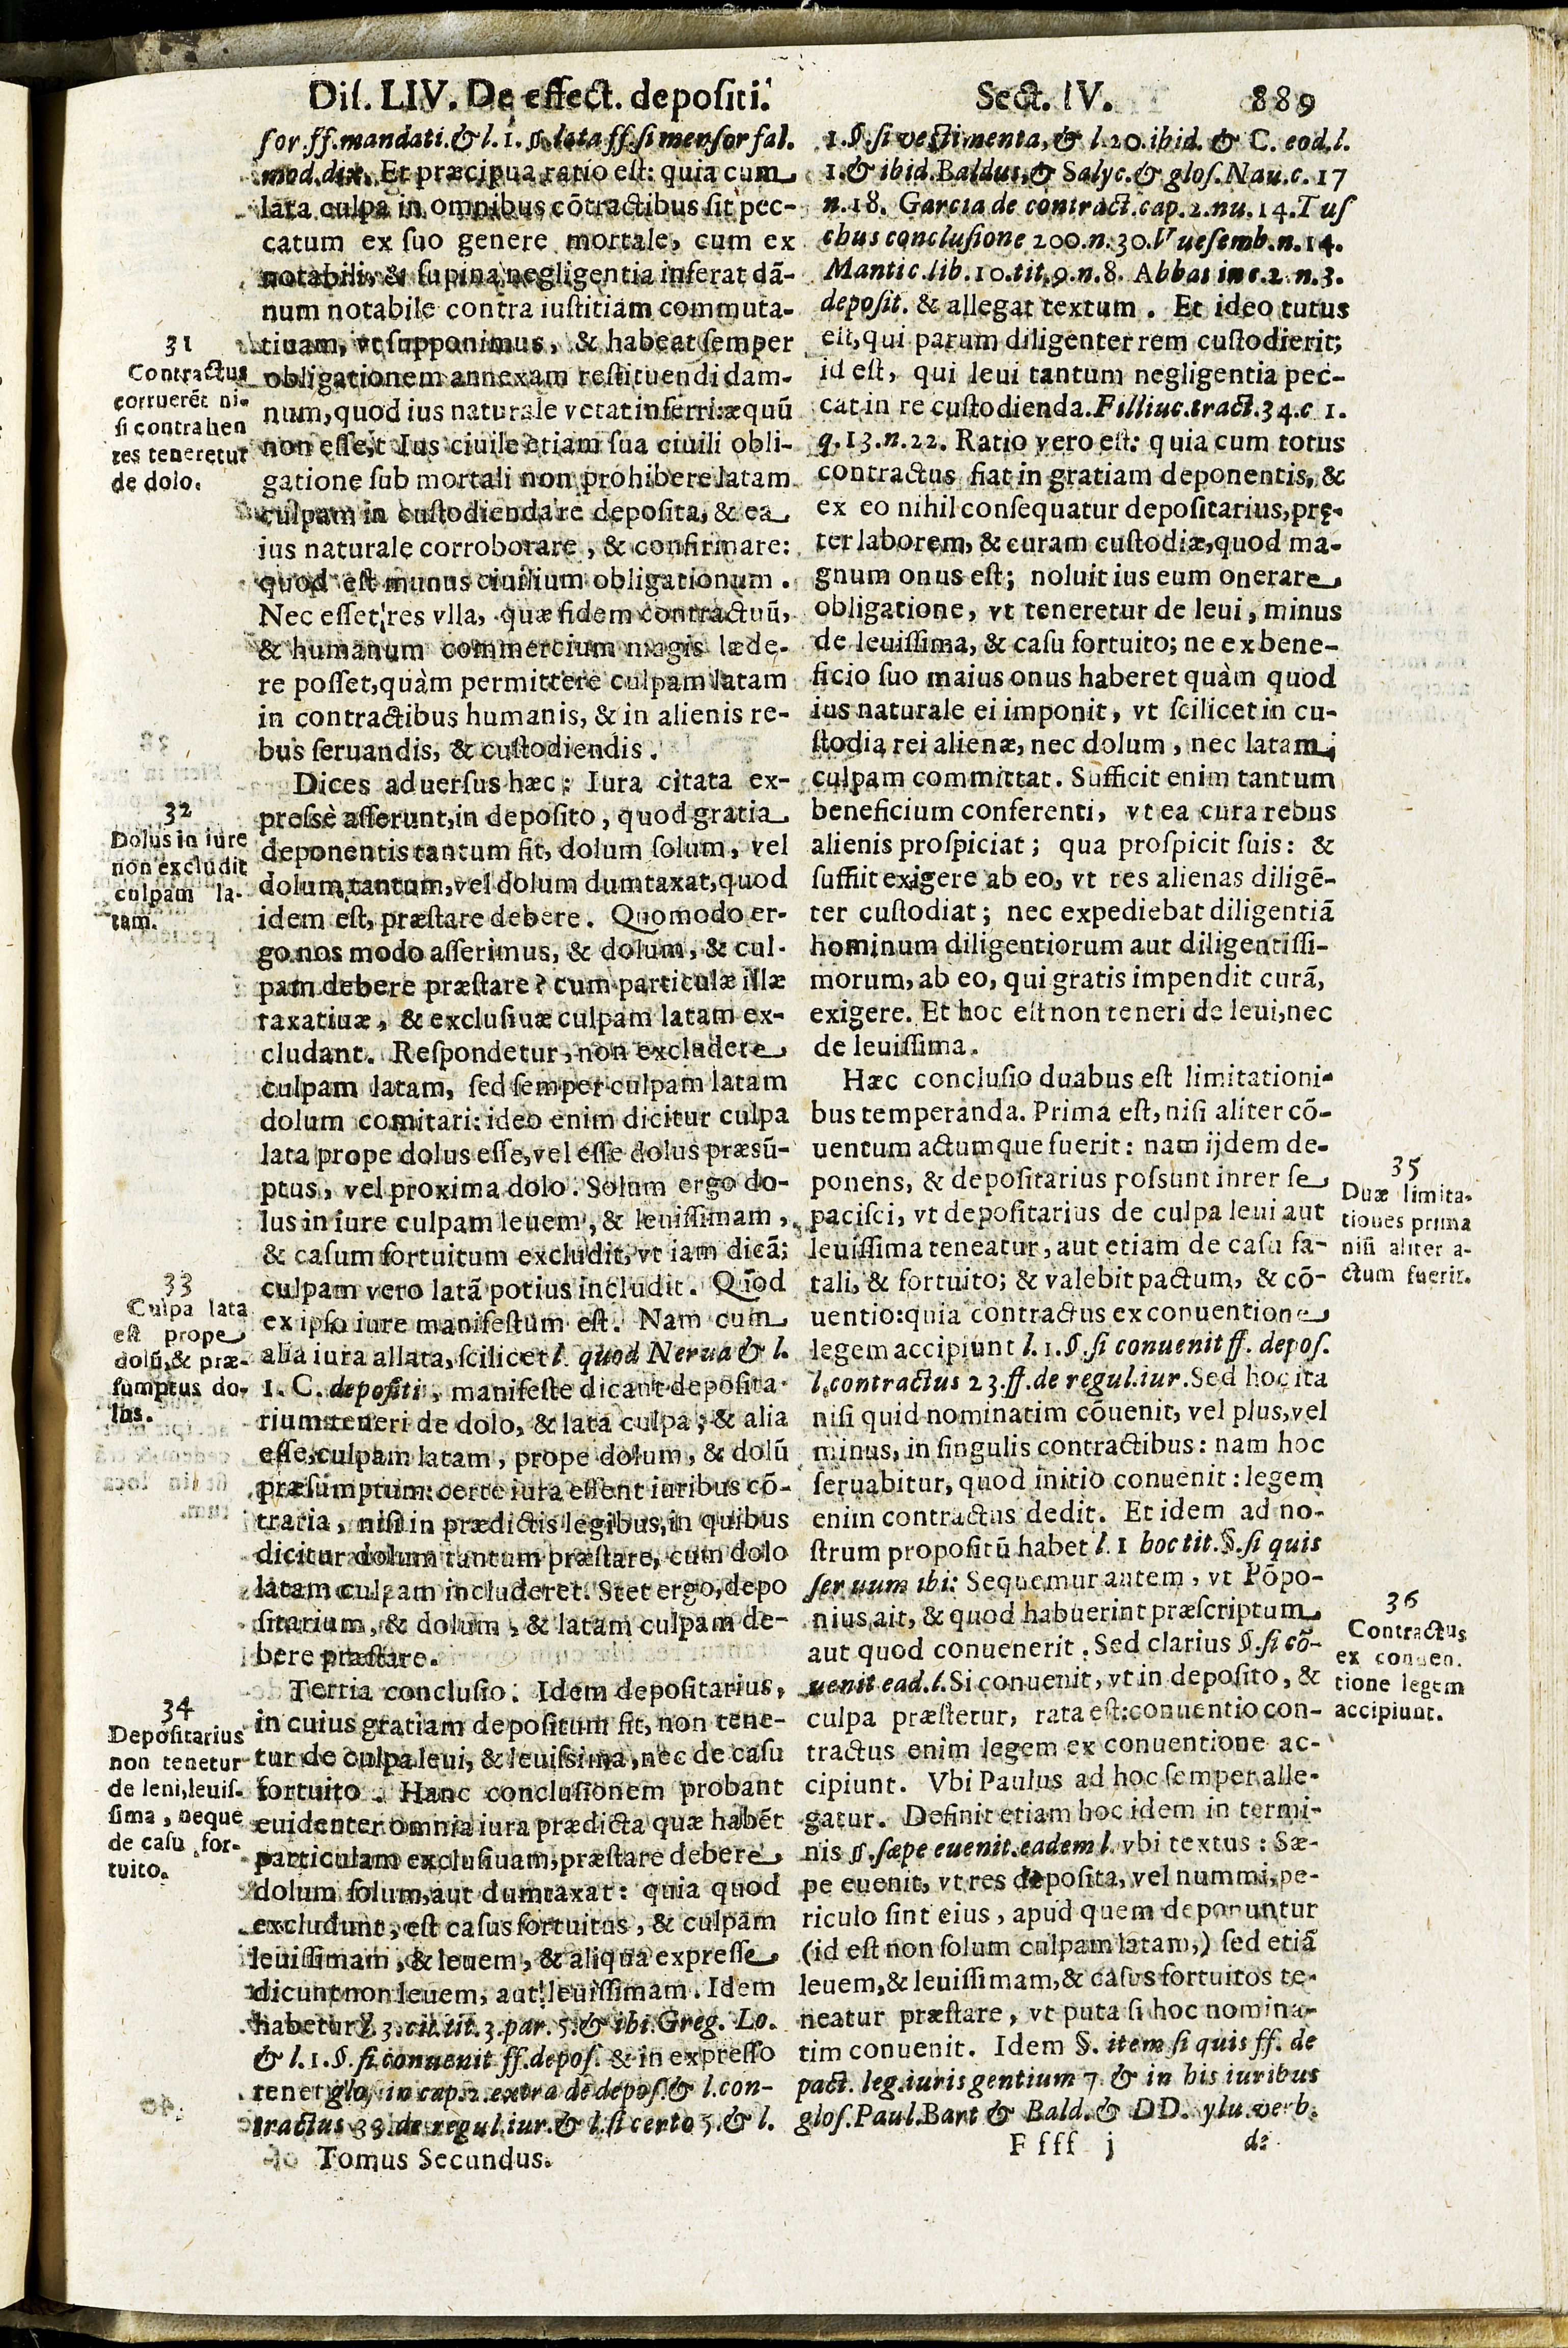 Diſ. LIV. De effect. depoſiti. Sect. IV. 889
ſor.ff.mandati.& l. 1. §. lata ff.ſi menſor fal.
mod.dix. Et præcipua ratio eſt: quia cum
lata culpa in omnibus cōtractibus ſit pec-
catum ex ſuo genere mortale, cum ex
notabili, & ſupina negligentia inferat dā-
num notabile contra iuſtitiam commuta-
tiuam, vt ſupponimus, & habeat ſemper
obligationem annexam reſtituendi dam-
num, quod ius naturale vetat inferri: æquū
non eſſet Ius ciuile etiam ſua ciuili obli-
gatione ſub mortali non prohibere latam
culpam in cuſtodienda re depoſita, & ea
ius naturale corroborare, & confirmare:
quod eſt munus ciuilium obligationum.
Nec eſſet res vlla, quæ fidem contractuū,
& humanum commercium magis læde-
re poſſet, quàm permittere culpam latam
in contractibus humanis, & in alienis re-
bus ſeruandis, & cuſtodiendis.
Dices aduerſus hæc: Iura citata ex-
preſsè aſſerunt, in depoſito, quod gratia
deponentis tantum fit, dolum ſolum, vel
dolum tantum, vel dolum dumtaxat, quod
idem eſt, præſtare debere. Quomodo er-
go nos modo aſſerimus, & dolum, & cul-
pam debere præſtare? cum particulæ illæ
taxatiuæ, & excluſiuæ culpam latam ex-
cludant. Reſpondetur, non excludere
culpam latam, ſed ſemper culpam latam
dolum comitari: ideo enim dicitur culpa
lata prope dolus eſſe, vel eſſe dolus præsū-
ptus, vel proxima dolo. Solum ergo do-
lus in iure culpam leuem, & leuiſſimam,
& caſum fortuitum excludit, vt iam dicā;
culpam vero latā potius includit. Quod
ex ipſo iure manifeſtum eſt. Nam cum
alia iura allata, ſcilicet l. quod Nerua & l.
1. C. depoſiti, manifeſte dicant depoſita-
rium teneri de dolo, & lata culpa; & alia
eſſe culpam latam, prope dolum, & dolū
præſumptum: certe iura eſſent iuribus cō-
traria, niſi in prædictis legibus, in quibus
dicitur dolum tantum præſtare, cum dolo
latam culpam includeret. Stet ergo, depo
ſitarium, & dolum, & latam culpam de-
bere præſtare.
Tertia concluſio. Idem depoſitarius,
in cuius gratiam depoſitum fit, non tene-
tur de culpa leui, & leuiſsima, nec de caſu
fortuito. Hanc concluſionem probant
euidenter omnia iura prædicta quæ habēt
particulam excluſiuam, præſtare debere
dolum ſolum, aut dumtaxat: quia quod
excludunt, eſt caſus fortuitus, & culpam
leuiſſimam, & leuem, & aliqua expreſſe
dicunt non leuem, aut leuiſſimam. Idem
habetur l. 3. cit. tit. 3. par. 5. & ibi Greg. Lo.
& l. 1. §. ſi conuenit ff. depoſ. & in expreſſo
tenet gloſ. in cap. 2. extra de depoſ. & l. con-
tractus 23. de regul. iur. & l. ſi certo 5. & l.
Tomus Secundus.
31
Contractus
corruerēt ni-
ſi contrahen
tes teneretur
de dolo.
32
Dolus in iure
non excludit
culpam la-
tam.
33
Culpa lata
eſt prope
dolū, & præ-
ſumptus do-
lus.
34
Depoſitarius
non tenetur
de leui, leuiſ-
ſima, neque
de caſu for-
tuito.
1. §. ſi veſtimenta, & l. 20. ibid. & C. eod. l.
1. & ibid. Baldus, & Salyc. & gloſ. Nau. c. 17
n. 18. Garcia de contract. cap. 2. nu. 14. Tuſ
chus concluſione 200. n. 30. Vueſemb. n. 14.
Mantic. lib. 10. tit. 9. n. 8. Abbas in c. 2. n. 3.
depoſit. & allegat textum. Et ideo tutus
eſt, qui parum diligenter rem cuſtodierit;
id eſt, qui leui tantum negligentia pec-
cat in re cuſtodienda. Filliuc. tract. 34. c 1.
q. 13. n. 22. Ratio vero eſt: quia cum totus
contractus fiat in gratiam deponentis, &
ex eo nihil conſequatur depoſitarius, prę-
ter laborem, & curam cuſtodiæ, quod ma-
gnum onus eſt; noluit ius eum onerare
obligatione, vt teneretur de leui, minus
de leuiſſima, & caſu fortuito; ne ex bene-
ficio ſuo maius onus haberet quàm quod
ius naturale ei imponit, vt ſcilicet in cu-
ſtodia rei alienæ, nec dolum, nec latam
culpam committat. Sufficit enim tantum
beneficium conferenti, vt ea cura rebus
alienis proſpiciat; qua proſpicit ſuis: &
ſuffiit exigere ab eo, vt res alienas diligē-
ter cuſtodiat; nec expediebat diligentiā
hominum diligentiorum aut diligentiſſi-
morum, ab eo, qui gratis impendit curā,
exigere. Et hoc eſt non teneri de leui, nec
de leuiſſima.
Hæc concluſio duabus eſt limitationi-
bus temperanda. Prima eſt, niſi aliter cō-
uentum actumque fuerit: nam ijdem de-
ponens, & depoſitarius poſsunt inrer ſe
paciſci, vt depoſitarius de culpa leui aut
leuiſſima teneatur, aut etiam de caſu fa-
tali, & fortuito; & valebit pactum, & cō-
uentio: quia contractus ex conuentione
legem accipiunt l. 1. §. ſi conuenit ff. depoſ.
l. contractus 23. ff. de regul. iur. Sed hoc ita
niſi quid nominatim cōuenit, vel plus, vel
minus, in ſingulis contractibus: nam hoc
ſeruabitur, quod initio conuenit: legem
enim contractus dedit. Et idem ad no-
ſtrum propoſitū habet l. 1 hoc tit. §. ſi quis
ſeruum ibi: Sequemur autem, vt Pōpo-
nius ait, & quod habuerint præſcriptum
aut quod conuenerit. Sed clarius §. ſi cō-
uenit ead. l. Si conuenit, vt in depoſito, &
culpa præſtetur, rata eſt: conuentio con-
tractus enim legem ex conuentione ac-
cipiunt. Vbi Paulus ad hoc ſemper alle-
gatur. Definit etiam hoc idem in termi-
nis §. ſæpe euenit. eadem l. vbi textus: Sæ-
pe euenit, vt res depoſita, vel nummi, pe-
riculo ſint eius, apud quem deponuntur
(id eſt non ſolum culpam latam,) ſed etiā
leuem, & leuiſſimam, & caſus fortuitos te-
neatur præſtare, vt puta ſi hoc nomina-
tim conuenit. Idem §. item ſi quis ff. de
pact. leg. iuris gentium 7. & in his iuribus
gloſ. Paul. Bart & Bald. & DD. ylu. verb.
Ffff j de
35
Duæ limita-
tiones prima
niſi aliter a-
ctum fuerit.
36
Contractus
ex conuen.
tione legem
accipiunt.